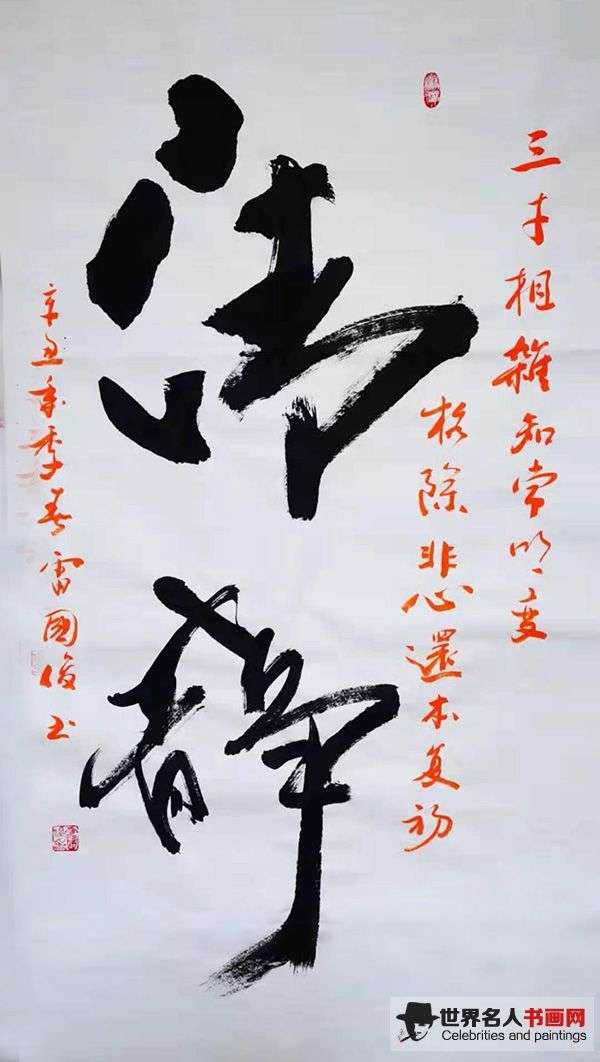 三才相雜知常明變
格除非心還本复初
清靜
辛丑年季春雷國俊书
世界名人书画网
Celebrities and paintings